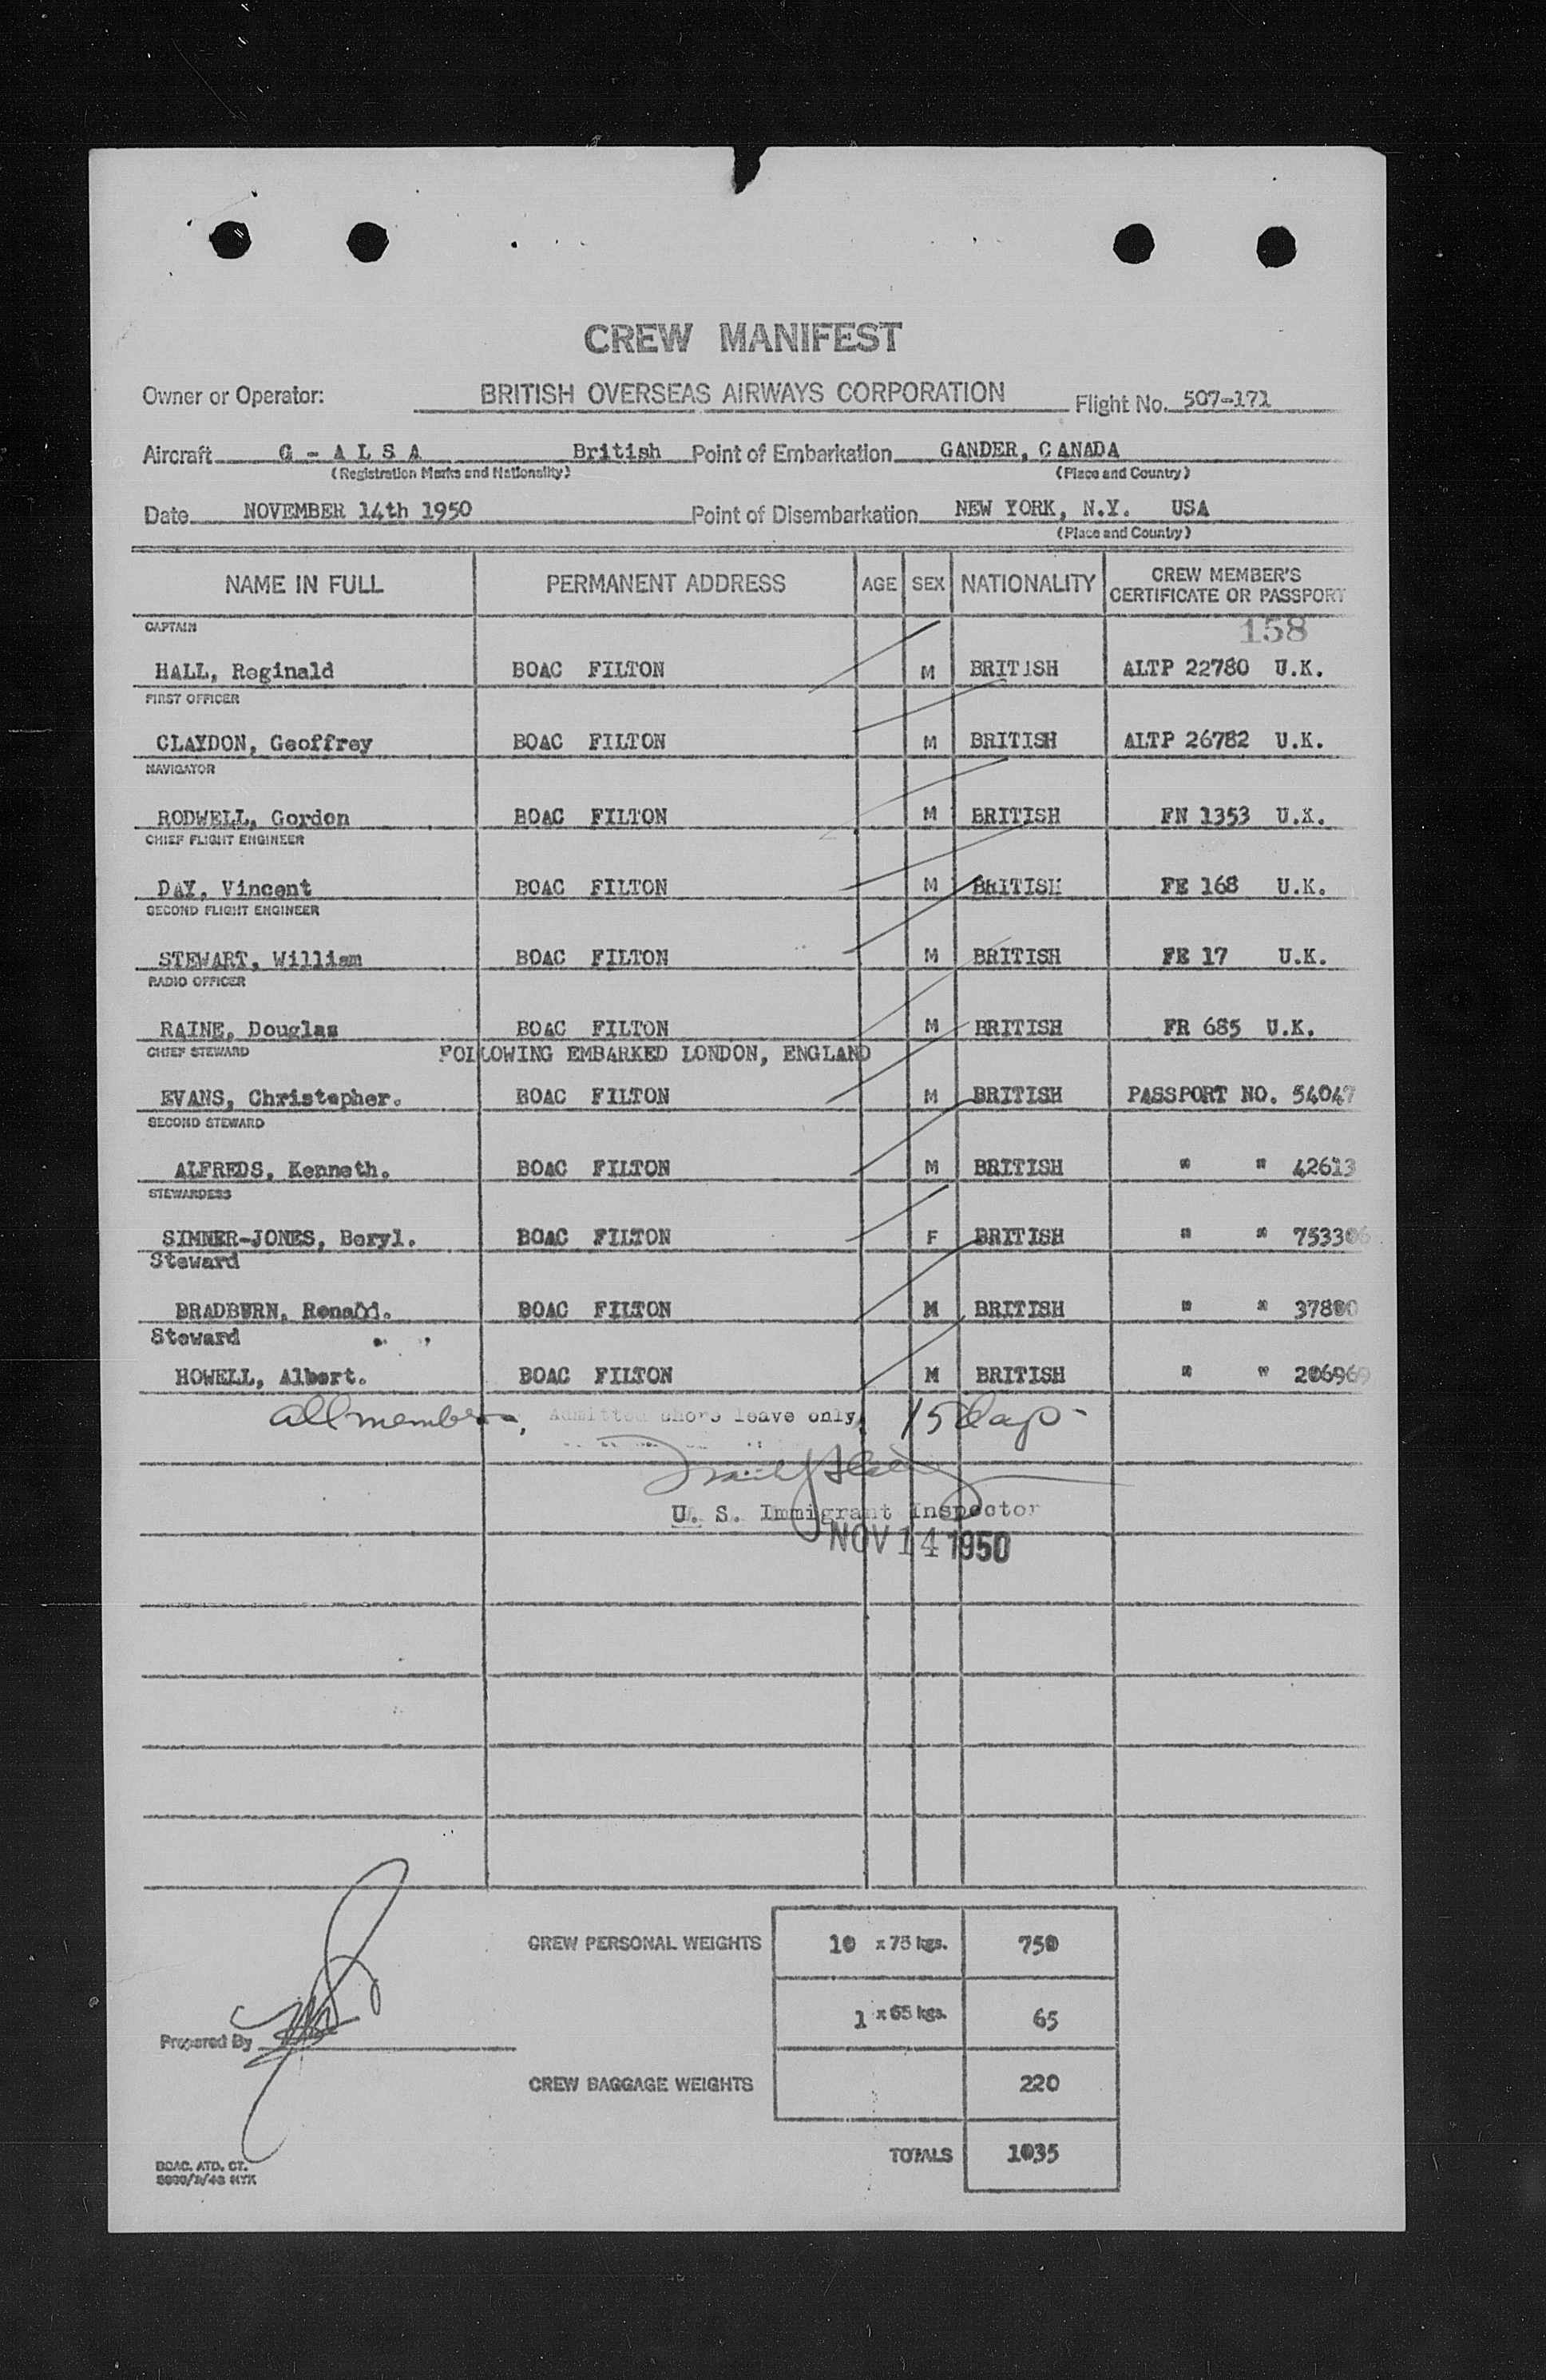 CREW MANIFEST
Owner or Operator: BRITISH OVERSEAS AIRWAYS CORPORATION Flight No. 507-171
Aircraft G - A L S A British Point of Embarkation GANDER, CANADA
(Registration Marks and Nationality) (Place and Country)
Date NOVEMBER 14th 1950 Point of Disembarkation NEW YORK, N.Y. USA
(Place and Country)
NAME IN FULL PERMANENT ADDRESS AGE SEX NATIONALITY CREW MEMBER'S CERTIFICATE OR PASSPORT
CAPTAIN 158
HALL, Reginald BOAC FILTON M BRITISH ALTP 22780 U.K.
FIRST OFFICER
CLAYDON, Geoffrey BOAC FILTON M BRITISH ALTP 26782 U.K.
NAVIGATOR
RODWELL, Gordon BOAC FILTON M BRITISH FN 1353 U.K.
CHIEF FLIGHT ENGINEER
DAY, Vincent BOAC FILTON M BRITISH FE 168 U.K.
SECOND FLIGHT ENGINEER
STEWART, William BOAC FILTON M BRITISH FE 17 U.K.
RADIO OFFICER
RAINE, Douglas BOAC FILTON M BRITISH FR 685 U.K.
CHIEF STEWARD FOLLOWING EMBARKED LONDON, ENGLAND
EVANS, Christopher. BOAC FILTON M BRITISH PASSPORT NO. 54047
SECOND STEWARD
ALFREDS, Kenneth. BOAC FILTON M BRITISH " " 42613
STEWARDESS
SIMNER-JONES, Beryl. BOAC FILTON F BRITISH " " 753306
Steward
BRADBURN, Ronald. BOAC FILTON M BRITISH " " 37800
Steward
HOWELL, Albert. BOAC FILTON M BRITISH " " 206969
all members, Admitted shore leave only, 15 days
U. S. Immigrant Inspector
NOV 14 1950
CREW PERSONAL WEIGHTS 10 x 75 kgs. 750
1 x 65 kgs. 65
Prepared By
CREW BAGGAGE WEIGHTS 220
TOTALS 1035
BOAC. ATD. CT.